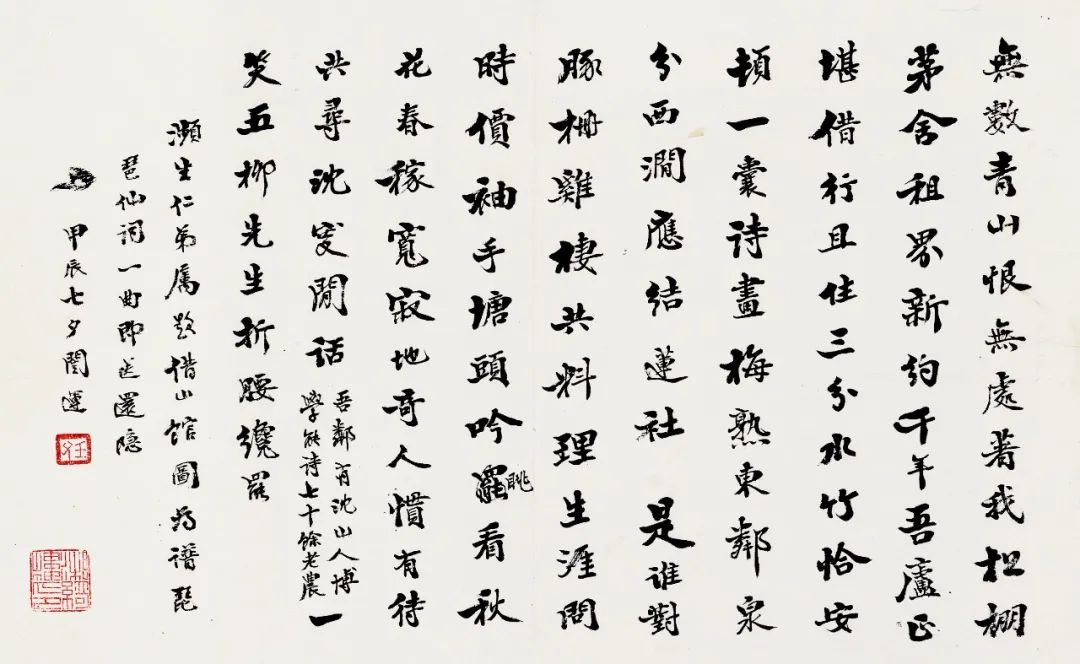 無數青山恨無處著我松棚
茅舍租界新約千年吾廬正
堪借行且住三分水竹恰安
頓一囊詩畫梅熟東鄰泉
分西澗應結蓮社是誰對
豚柵雞棲共料理生涯問
時價袖手塘頭吟罷眺看秋
花春稼寬寂地奇人慣有待
共尋沈叟閒話
吾鄰有沈山人博
學能詩七十餘老農
一
笑五柳先生折腰纔罷
瀕生仁弟屬題借山館圖為譜琵
琶仙詞一曲即送還隱
甲辰七夕闓運
王